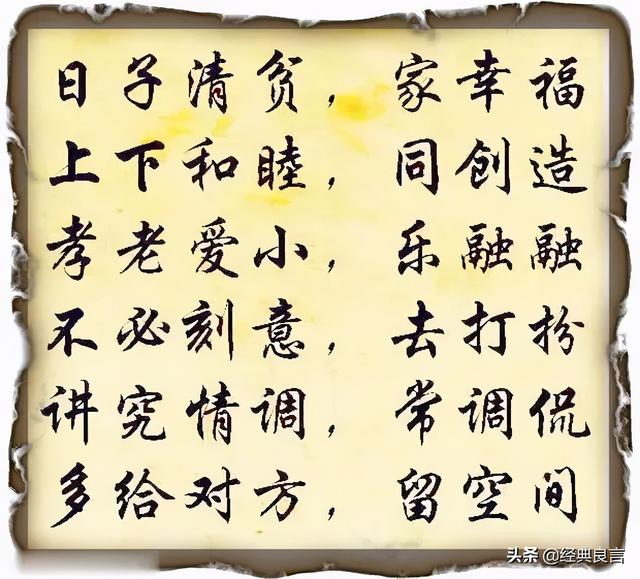 日子清贫，家幸福
上下和睦，同创造
孝老爱小，乐融融
不必刻意，去打扮
讲究情调，常调侃
多给对方，留空间
头条 @经典良言